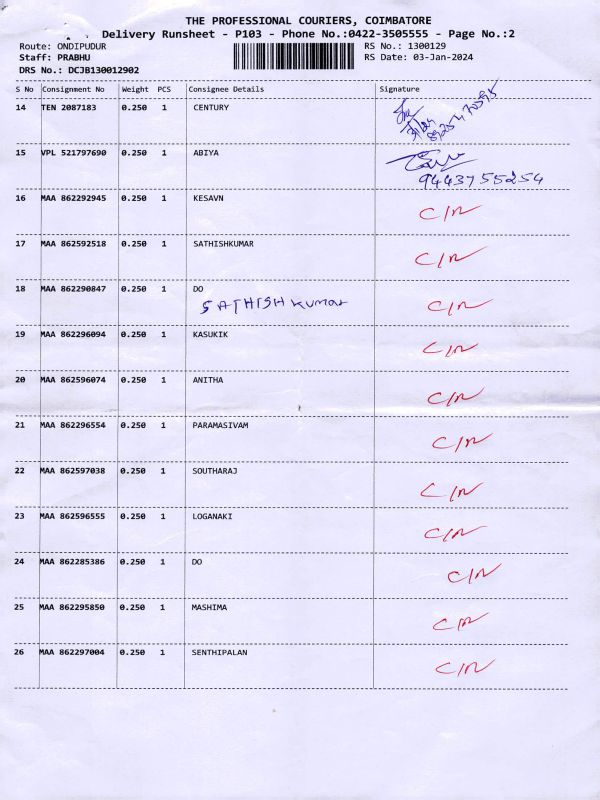 THE PROFESSIONAL COURIERS, COIMBATORE
Delivery Runsheet - P103 - Phone No.:0422-3505555 - Page No.:2
Route: ONDIPUDUR RS No.: 1300129
Staff: PRABHU RS Date: 03-Jan-2024
DRS No.: DCJB130012902
S No Consignment No Weight PCS Consignee Details Signature
14 TEN 2087183 0.250 1 CENTURY
15 VPL 521797690 0.250 1 ABIYA
9443755254
16 MAA 862292945 0.250 1 KESAVN C/N
17 MAA 862592518 0.250 1 SATHISHKUMAR C/N
18 MAA 862290847 0.250 1 DO C/N
SATHISH KUMAR
19 MAA 862296094 0.250 1 KASUKIK C/N
20 MAA 862596074 0.250 1 ANITHA C/N
21 MAA 862296554 0.250 1 PARAMASIVAM C/N
22 MAA 862597038 0.250 1 SOUTHARAJ C/N
23 MAA 862596555 0.250 1 LOGANAKI C/N
24 MAA 862285386 0.250 1 DO C/N
25 MAA 862295850 0.250 1 MASHIMA C/N
26 MAA 862297004 0.250 1 SENTHIPALAN C/N